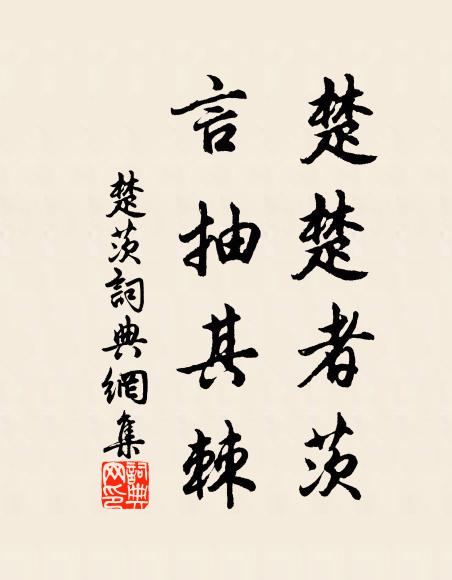 楚楚者茨
言抽其棘
楚茨詞典網集
詞典网印